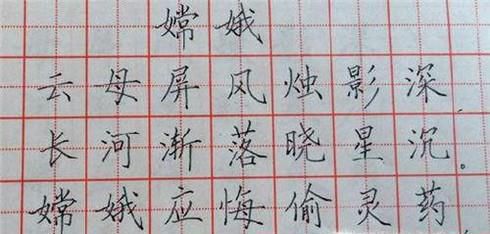 嫦娥
云母屏风烛影深，
长河渐落晓星沉。
嫦娥应悔偷灵药，